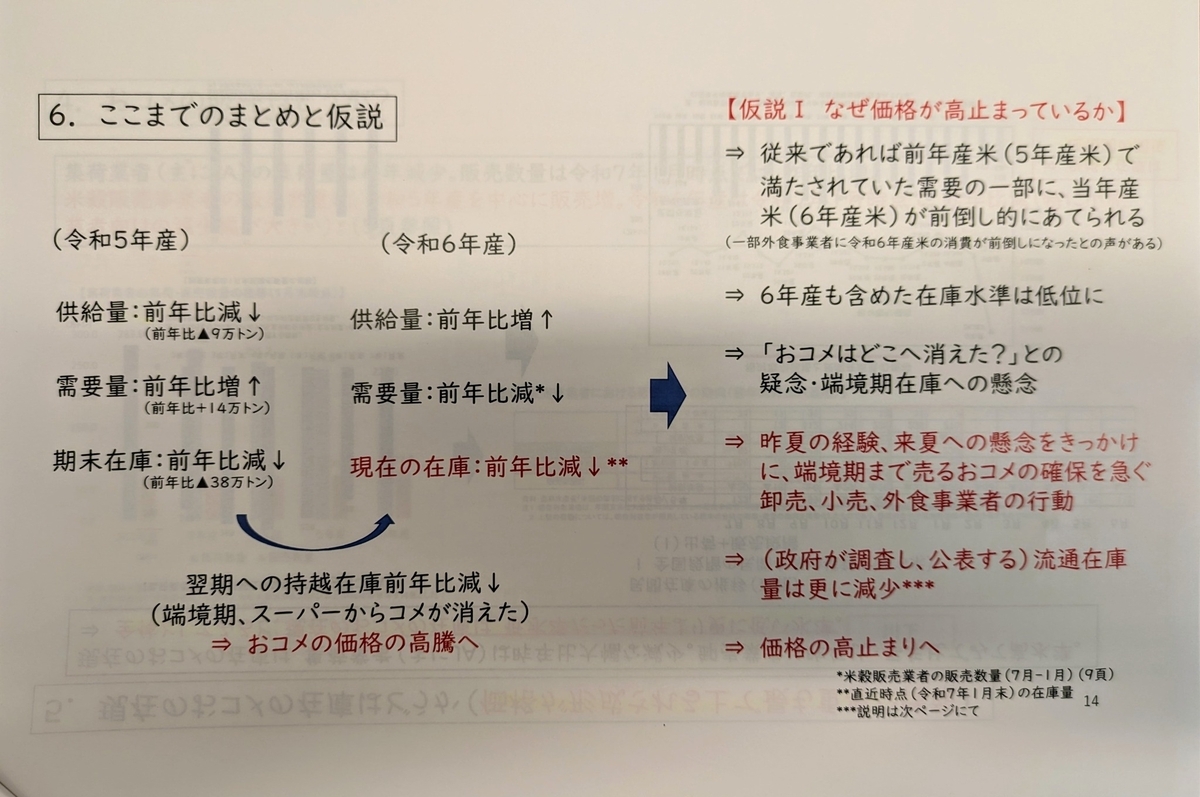 6. ここまでのまとめと仮説
(令和5年産)
供給量:前年比減↓
(前年比▲9万トン)
需要量:前年比増↑
(前年比+14万トン)
期末在庫:前年比減↓
(前年比▲38万トン)
(令和6年産)
供給量:前年比増↑
需要量:前年比減*↓
現在の在庫:前年比減↓**
翌期への持越在庫前年比減↓
(端境期、スーパーからコメが消えた)
⇒ おコメの価格の高騰へ
【仮説Ⅰ なぜ価格が高止まっているか】
⇒ 従来であれば前年産米(5年産米)で
満たされていた需要の一部に、当年産
米(6年産米)が前倒し的にあてられる
(一部外食事業者に令和6年産米の消費が前倒しになったとの声がある)
⇒ 6年産も含めた在庫水準は低位に
⇒ 「おコメはどこへ消えた?」との
疑念・端境期在庫への懸念
⇒ 昨夏の経験、来夏への懸念をきっかけ
に、端境期まで売るおコメの確保を急ぐ
卸売、小売、外食事業者の行動
⇒ (政府が調査し、公表する)流通在庫
量は更に減少***
⇒ 価格の高止まりへ
*米穀販売業者の販売数量(7月-1月)(9頁)
**直近時点(令和7年1月末)の在庫量
***説明は次ページにて
14